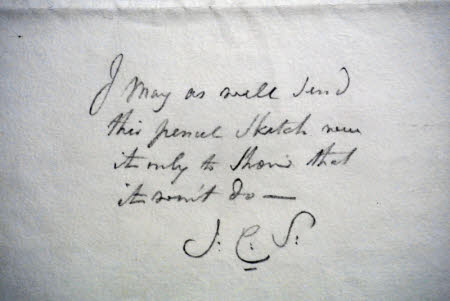 I may as well send
this pencil sketch were
it only to Show that
it won't do —
J. C. S.